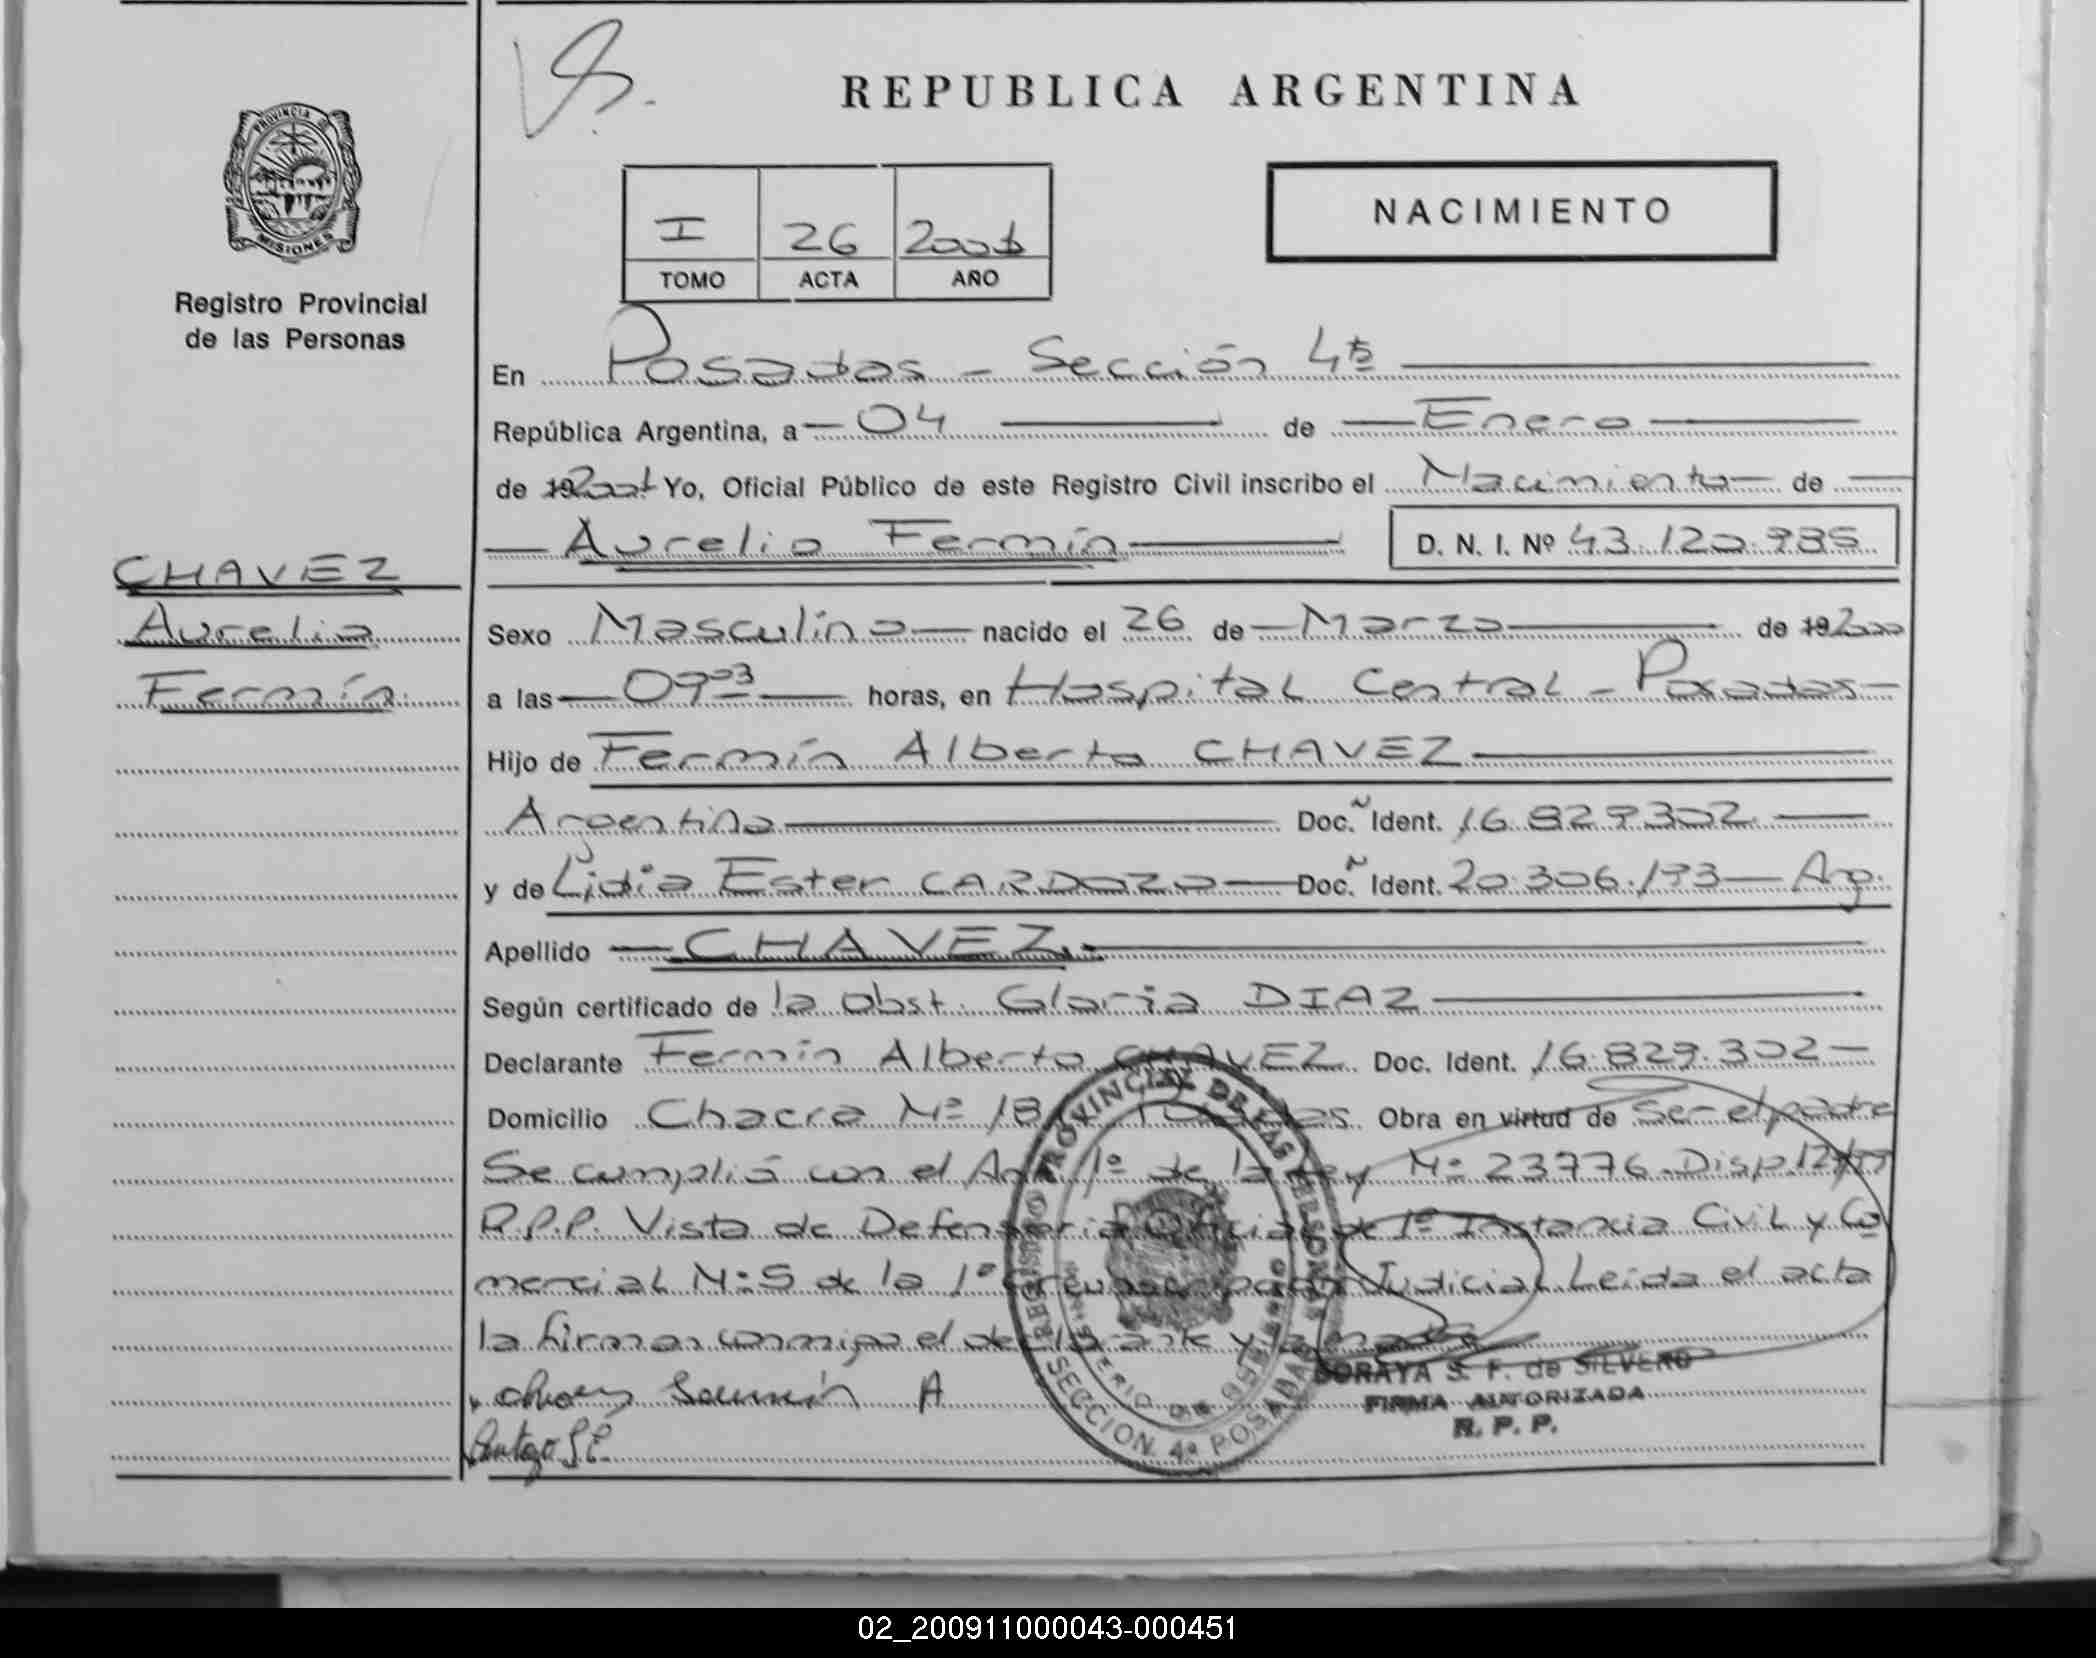 REPUBLICA ARGENTINA
PROVINCIA DE
MISIONES
Registro Provincial
de las Personas
I 26 2001
TOMO ACTA AÑO
NACIMIENTO
En Posadas - Sección 4ta
República Argentina, a 04 de Enero
de 19 2001 Yo, Oficial Público de este Registro Civil inscribo el Nacimiento de
Aurelio Fermín D. N. I. Nº 43.120.985
CHAVEZ
Aurelio
Fermín
Sexo Masculino nacido el 26 de Marzo de 19 2000
a las 09 03 horas, en Hospital Central - Posadas
Hijo de Fermín Alberto CHAVEZ
Argentino Doc. Ident. 16.829.302
y de Lidia Ester CARDOZO Doc. Ident. 20.306.193 - Arg.
Apellido CHAVEZ
Según certificado de la obst. Gloria DIAZ
Declarante Fermín Alberto CHAVEZ Doc. Ident. 16.829.302
Domicilio Chacra Nº 18 Posadas Obra en virtud de Ser el padre
Se cumplió con el Art. 1º de la Ley Nº 23776. Disp. 12/99
R.P.P. Vista de Defensoria Oficial de 1º Instancia Civil y Co
mercial Nº 5 de la 1º Circunscripción Judicial Leida el acta
la firman conmigo el declarante y la madre
Chavez Fermín A
SORAYA S. F. de SILVERO
FIRMA AUTORIZADA
R. P. P.
REGISTRO PROVINCIAL DE LAS PERSONAS
SECCION 4ª POSADAS
02_200911000043-000451